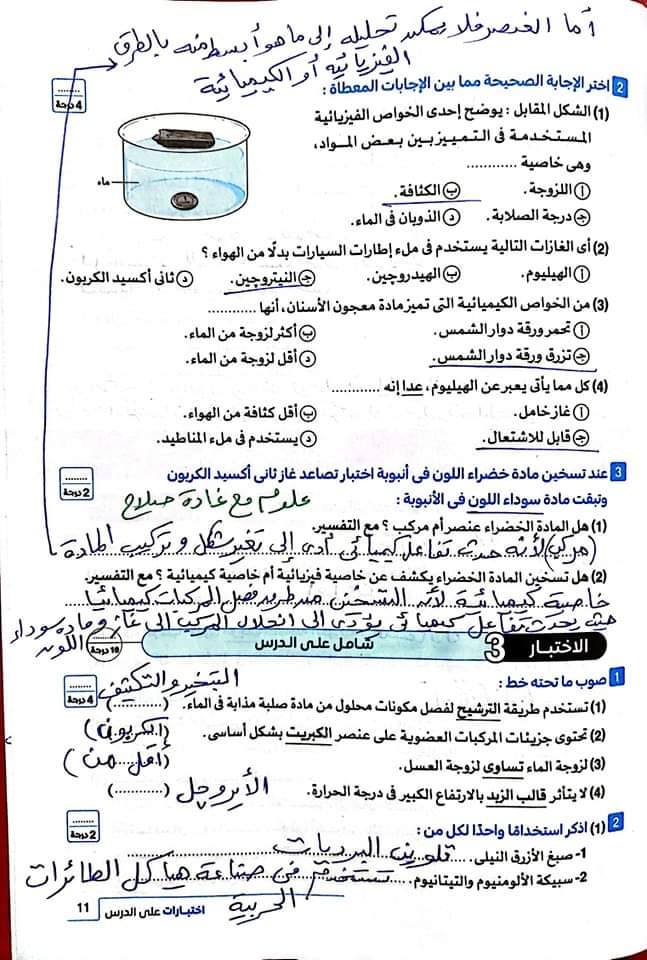 أما العنصر فلا يمكن تحليله إلى ما هو أبسط منه بالطرق
الفيزيائية أو الكيميائية
2 اختر الإجابة الصحيحة مما بين الإجابات المعطاة :
4 درجة
(1) الشكل المقابل : يوضح إحدى الخواص الفيزيائية
المستخدمة فى التمييز بين بعض المواد،
وهى خاصية ............
ماء
أ اللزوجة.
ب الكثافة.
ج درجة الصلابة.
د الذوبان فى الماء.
(2) أى الغازات التالية يستخدم فى ملء إطارات السيارات بدلًا من الهواء ؟
أ الهيليوم.
ب الهيدروچين.
ج النيتروچين.
د ثانى أكسيد الكربون.
(3) من الخواص الكيميائية التى تميز مادة معجون الأسنان، أنها ............
أ تحمر ورقة دوار الشمس.
ب أكثر لزوجة من الماء.
ج تزرق ورقة دوار الشمس.
د أقل لزوجة من الماء.
(4) كل مما يأتى يعبر عن الهيليوم، عدا إنه ............
أ غاز خامل.
ب أقل كثافة من الهواء.
ج قابل للاشتعال.
د يستخدم فى ملء المناطيد.
3 عند تسخين مادة خضراء اللون فى أنبوبة اختبار تصاعد غاز ثانى أكسيد الكربون
2 درجة
وتبقت مادة سوداء اللون فى الأنبوبة :
علوم مع غادة صلاح
(1) هل المادة الخضراء عنصر أم مركب ؟ مع التفسير.
(مركب) لأنه حدث تفاعل كيميائى أدى إلى تغير شكل و تركيب المادة
(2) هل تسخين المادة الخضراء يكشف عن خاصية فيزيائية أم خاصية كيميائية ؟ مع التفسير.
خاصية كيميائية لأن التسخين من طرق فصل المركبات كيميائيا
حيث يحدث تفاعل كيميائى يؤدى إلى انحلال المركب إلى غاز و مادة سوداء
اللون
الاختبار 3 شامل على الدرس
10 درجة
1 صوب ما تحته خط :
4 درجة
(1) تستخدم طريقة الترشيح لفصل مكونات محلول من مادة صلبة مذابة فى الماء. (............)
التبخير والتكثيف
(2) تحتوى جزيئات المركبات العضوية على عنصر الكبريت بشكل أساسى. (الكربون)
(3) لزوجة الماء تساوى لزوجة العسل. (أقل من)
(4) لا يتأثر قالب الزبد بالارتفاع الكبير فى درجة الحرارة. (............)
الأيروچل
2 (1) اذكر استخدامًا واحدًا لكل من :
2 درجة
1- صبغ الأزرق النيلى. تلوين البرديات
2- سبيكة الألومنيوم والتيتانيوم. تستخدم فى صناعة هياكل الطائرات
الحربية
اختبارات على الدرس 11